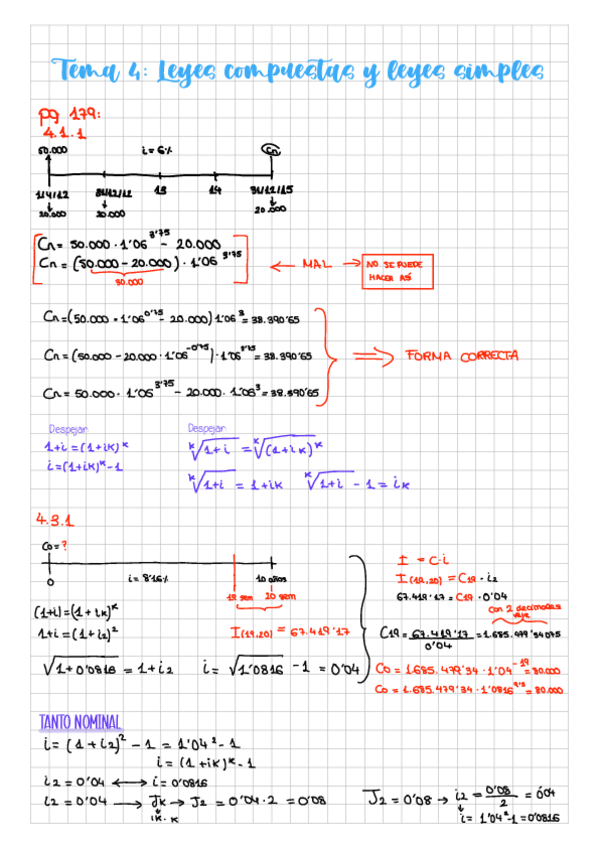 Tema 4: Leyes compuestas y leyes simples
pg 179:
4.1.1
50.000 i = 6% Cn
1/4/12 31/12/12 13 14 31/12/15
20.000 20.000 20.000
Cn = 50.000 · 1'06^3'75 - 20.000
Cn = (50.000 - 20.000) · 1'06^3'75
30.000
← MAL → NO SE PUEDE HACER ASÍ
Cn = (50.000 · 1'06^0'75 - 20.000) 1'06^3 = 38.390'65
Cn = (50.000 - 20.000 · 1'06^-0'75) · 1'06^3'75 = 38.390'65
⇒ FORMA CORRECTA
Cn = 50.000 · 1'06^3'75 - 20.000 · 1'06^3 = 38.390'65
Despejar
1+i = (1+ik)^k
i = (1+ik)^k - 1
Despejar
^k√1+i = ^k√(1+ik)^k
^k√1+i = 1+ik ^k√1+i - 1 = ik
4.3.1
Co = ?
0 i = 8'16% 10 años
19 sem 20 sem
I(19,20) = 67.419'17
(1+i) = (1+ik)^k
1+i = (1+i2)^2
√1+0'0816 = 1+i2 i = √1'0816 - 1 = 0'04
I = C·i
I(19,20) = C19 · i2
67.419'17 = C19 · 0'04
con 2 decimales
C19 = 67.419'17 / 0'04 = 1.685.479'34
Co = 1.685.479'34 · 1'04^-19 = 80.000
Co = 1.685.479'34 · 1'0816^-9'5 = 80.000
TANTO NOMINAL
i = (1+i2)^2 - 1 = 1'04^2 - 1
i = (1+ik)^k - 1
i2 = 0'04 ↔ i = 0'0816
i2 = 0'04 → Jk → J2 = 0'04 · 2 = 0'08
ik · k
J2 = 0'08 → i2 = 0'08 / 2 = 0'04
i = 1'04^2 - 1 = 0'0816